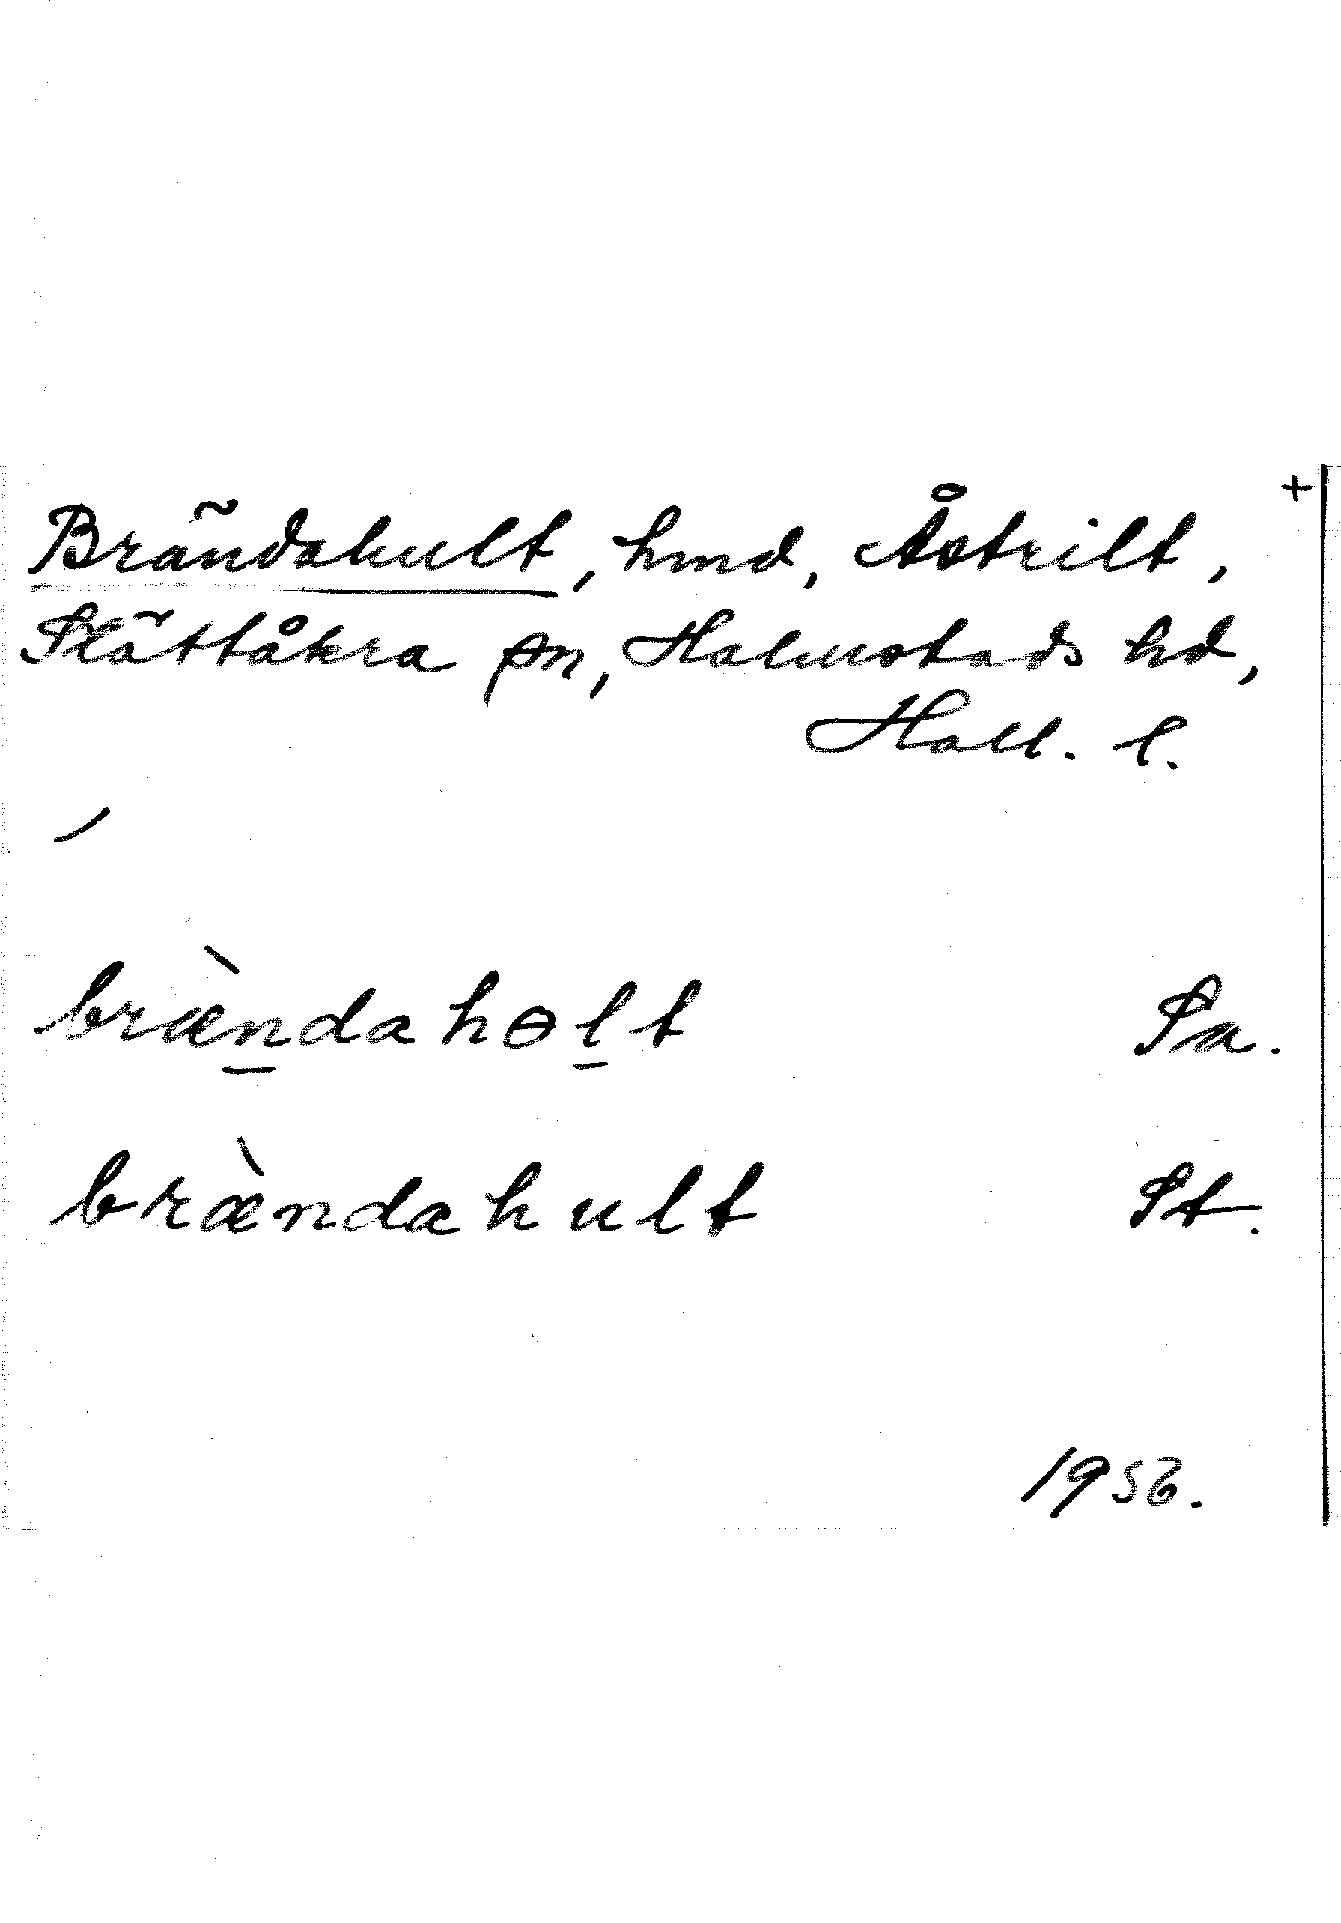 +
Brändahult, hmd, Åstrilt,
Slättåkra sn, Halmstads hd,
Hall. l.
bræ̀ndahɵlt Sa.
bræ̀ndahult St.
1956.